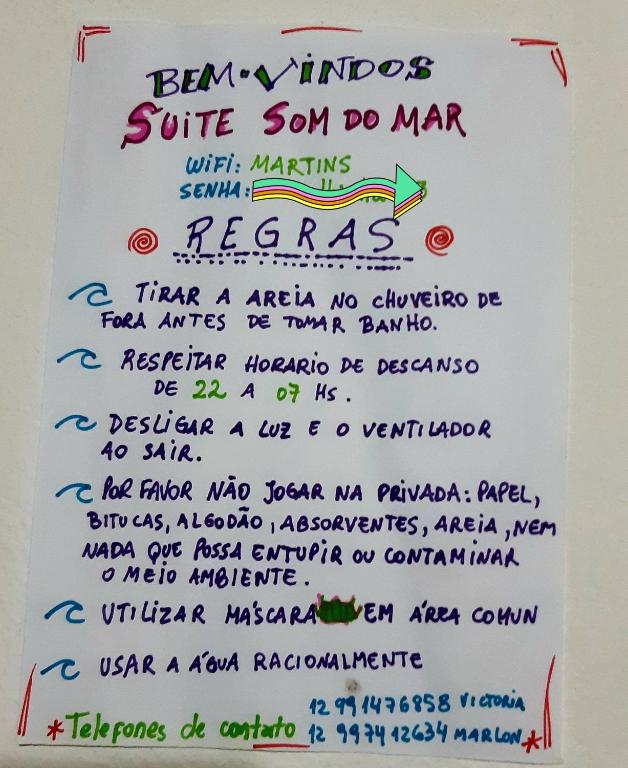 BEM-VINDOS
SUITE SOM DO MAR
WIFI: MARTINS
SENHA:
REGRAS
TIRAR A AREIA NO CHUVEIRO DE
FORA ANTES DE TOMAR BANHO.
RESPEITAR HORARIO DE DESCANSO
DE 22 A 07 HS.
DESLIGAR A LUZ E O VENTILADOR
AO SAIR.
POR FAVOR NÃO JOGAR NA PRIVADA: PAPEL,
BITUCAS, ALGODÃO, ABSORVENTES, AREIA, NEM
NADA QUE POSSA ENTUPIR OU CONTAMINAR
O MEIO AMBIENTE.
UTILIZAR MÁSCARA EM ÁREA COMUN
USAR A ÁGUA RACIONALMENTE
12 991476858 VICTORIA
*Telefones de contato 12 997412634 MARLON*